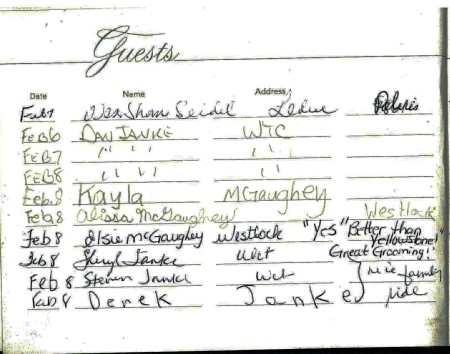 Guests
Date Name Address
Feb 7 Seidel Leduc
Feb 6 Dan Janke Wtc
Feb 7 " " " " " "
Feb 8 " " " " " "
Feb. 8 Kayla McGaughey
Feb 8 Alissa McGaughey Westlock
Feb 8 Elsie McGaughey Westlock "Yes" Better than Yellowstone!
Feb 8 Sheryl Janke Wet Great Grooming!
Feb 8 Steven Janke Wet nice family
Feb 8 Derek Janke ride